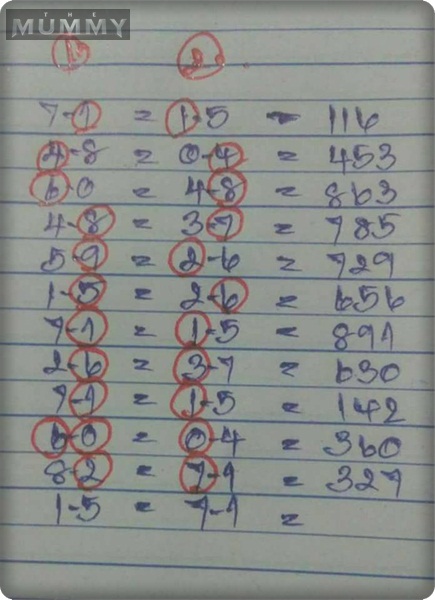 THE
MUMMY
1 2
7-1 = 1-5 = 116
4-8 = 0-4 = 453
6-0 = 4-8 = 863
4-8 = 3-7 = 785
5-9 = 2-6 = 729
1-5 = 2-6 = 656
7-1 = 1-5 = 891
2-6 = 3-7 = 630
7-1 = 1-5 = 142
6-0 = 0-4 = 360
8-2 = 7-1 = 327
1-5 = 7-1 =